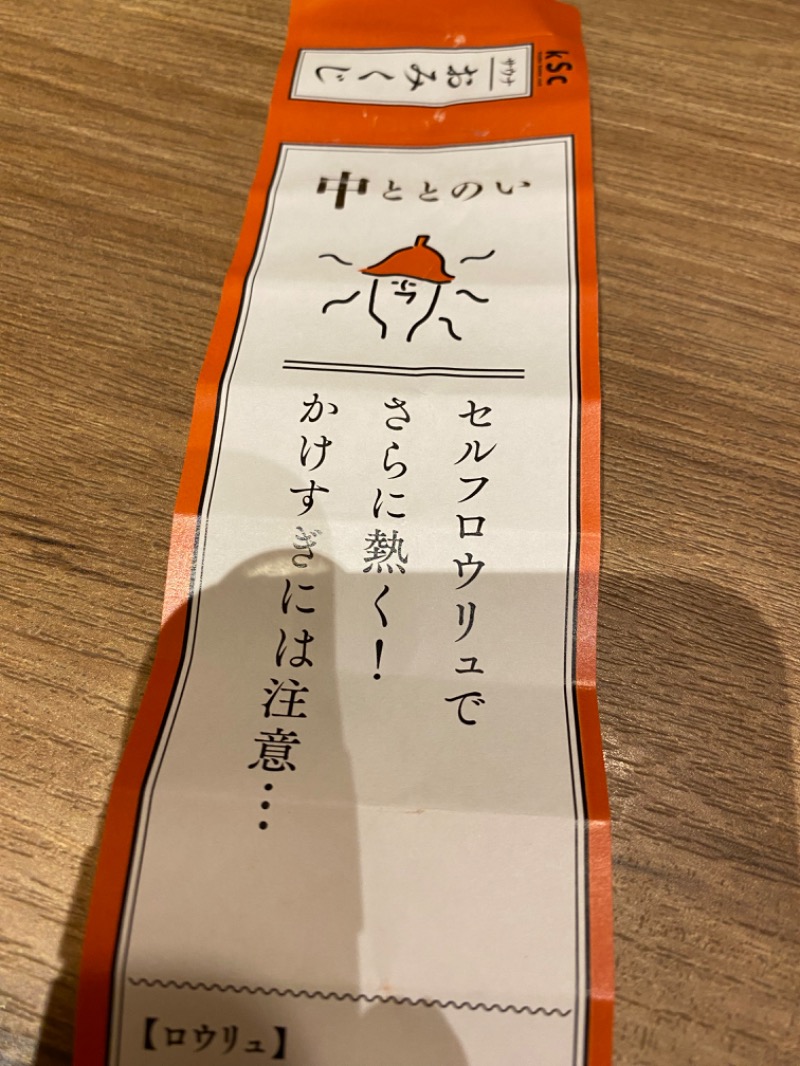 kSc
サウナ
おみくじ
中ととのい
セルフロウリュで
さらに熱く！
かけすぎには注意…
【ロウリュ】